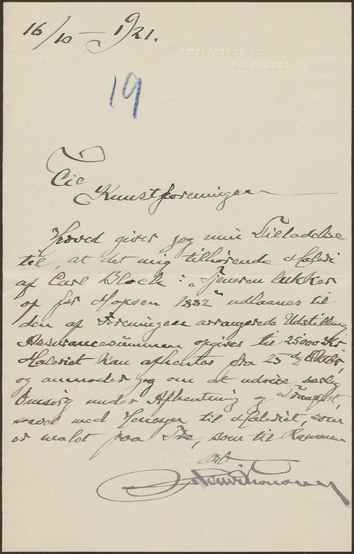 16/10 – 1921.
19
Til
Kunstforeningen
Herved giver jeg min Tilladelse
til, at det mig tilhørende Maleri
af Carl Bloch: "Fruen lukker
op for Mopsen 1882" udlaanes til
den af Foreningen arrangerede Udstilling
Assurancesummen opgives til 25000 Kr
Maleriet kan afhentes fra 25 de Oktbr,
og anmoder jeg om at udvise særlig
Omsorg under Afhentning og Transport,
med Hensyn til Maleriet, som
er malet paa Træ, som til Rammen